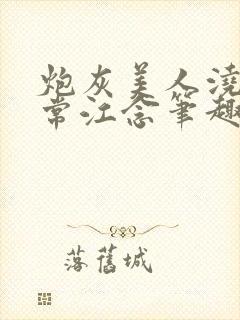 炮灰美人澆
常江念筆趣
落舊城